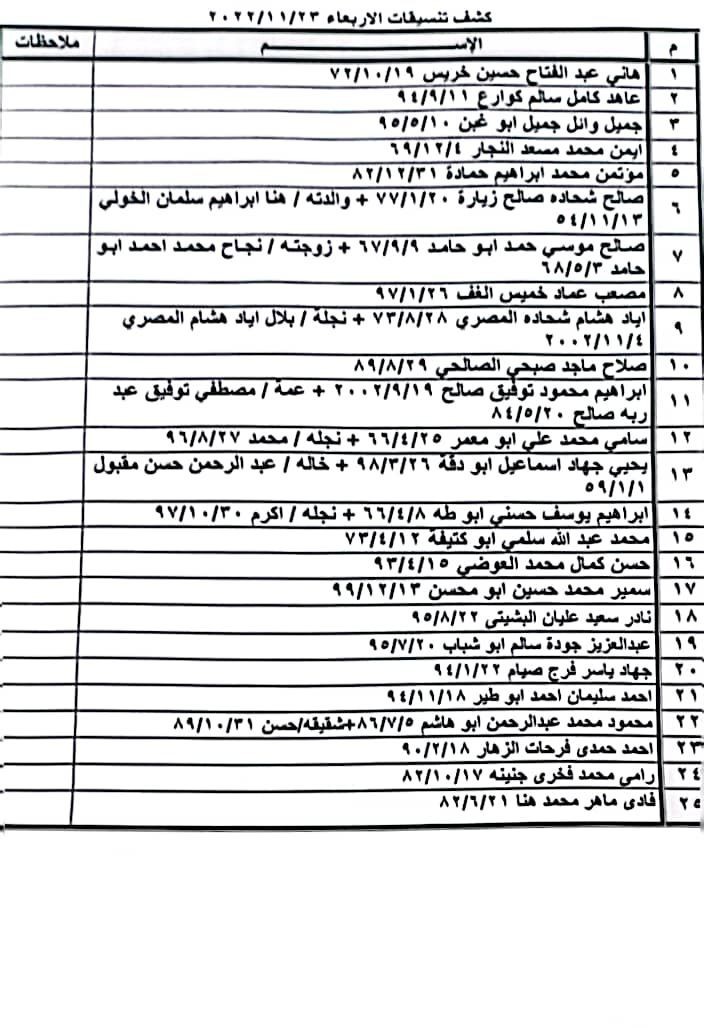 كشف تنسيقات الاربعاء ٢٠٢٢/١١/٢٣
م الإســـــــم ملاحظات
١ هاني عبد الفتاح حسين خريس ٧٢/١٠/١٩
٢ عاهد كامل سالم كوارع ٩٤/٩/١١
٣ جميل وائل جميل ابو غبن ٩٥/٥/١٠
٤ ايمن محمد مسعد النجار ٦٩/١٢/٤
٥ مؤتمن محمد ابراهيم حمادة ٨٢/١٢/٣١
٦ صالح شحاده صالح زيارة ٧٧/١/٢٠ + والدته / هنا ابراهيم سلمان الخولي
٥٤/١١/١٣
٧ صالح موسي حمد ابو حامد ٦٧/٩/٩ + زوجته / نجاح محمد احمد ابو
حامد ٦٨/٥/٣
٨ مصعب عماد خميس الغف ٩٧/١/٢٦
٩ اياد هشام شحاده المصري ٧٣/٨/٢٨ + نجلة / بلال اياد هشام المصري
٢٠٠٢/١١/٤
١٠ صلاح ماجد صبحي الصالحي ٨٩/٨/٢٩
١١ ابراهيم محمود توفيق صالح ٢٠٠٢/٩/١٩ + عمة / مصطفي توفيق عبد
ربه صالح ٨٤/٥/٢٠
١٢ سامي محمد علي ابو معمر ٦٦/٤/٢٥ + نجله / محمد ٩٦/٨/٢٧
١٣ يحيي جهاد اسماعيل ابو دقة ٩٨/٣/٢٦ + خاله / عبد الرحمن حسن مقبول
٥٩/١/١
١٤ ابراهيم يوسف حسني ابو طه ٦٦/٤/٨ + نجله / اكرم ٩٧/١٠/٣٠
١٥ محمد عبد الله سلمي ابو كتيفة ٧٣/٤/١٢
١٦ حسن كمال محمد العوضي ٩٣/٤/١٥
١٧ سمير محمد حسين ابو محسن ٩٩/١٢/١٣
١٨ نادر سعيد عليان البشيتى ٩٥/٨/٢٢
١٩ عبدالعزيز جودة سالم ابو شباب ٩٥/٧/٢٠
٢٠ جهاد ياسر فرج صيام ٩٤/١/٢٢
٢١ احمد سليمان احمد ابو طير ٩٤/١١/١٨
٢٢ محمود محمد عبدالرحمن ابو هاشم ٨٦/٧/٥+شقيقه/حسن ٨٩/١٠/٣١
٢٣ احمد حمدى فرحات الزهار ٩٠/٢/١٨
٢٤ رامى محمد فخرى جنينه ٨٢/١٠/١٧
٢٥ فادى ماهر محمد هنا ٨٢/٦/٢١